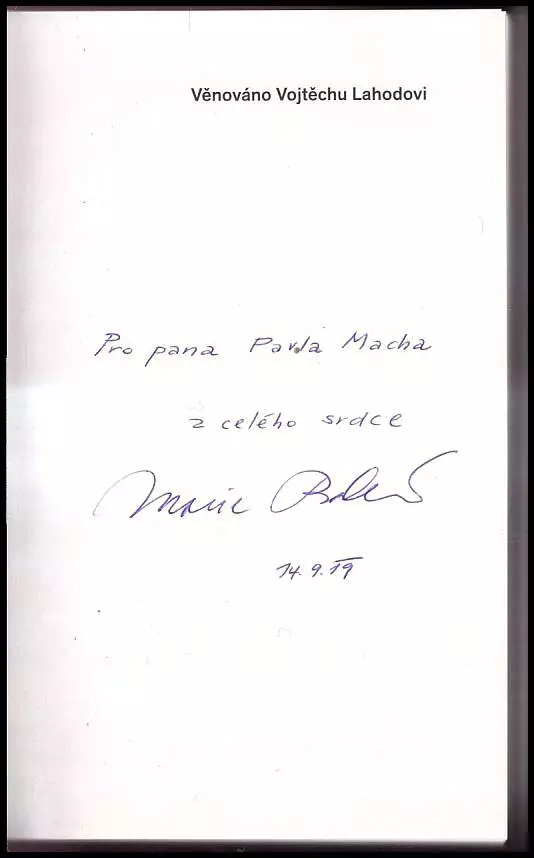 Věnováno Vojtěchu Lahodovi
Pro pana Pavla Macha
z celého srdce
Marie
14.9.19